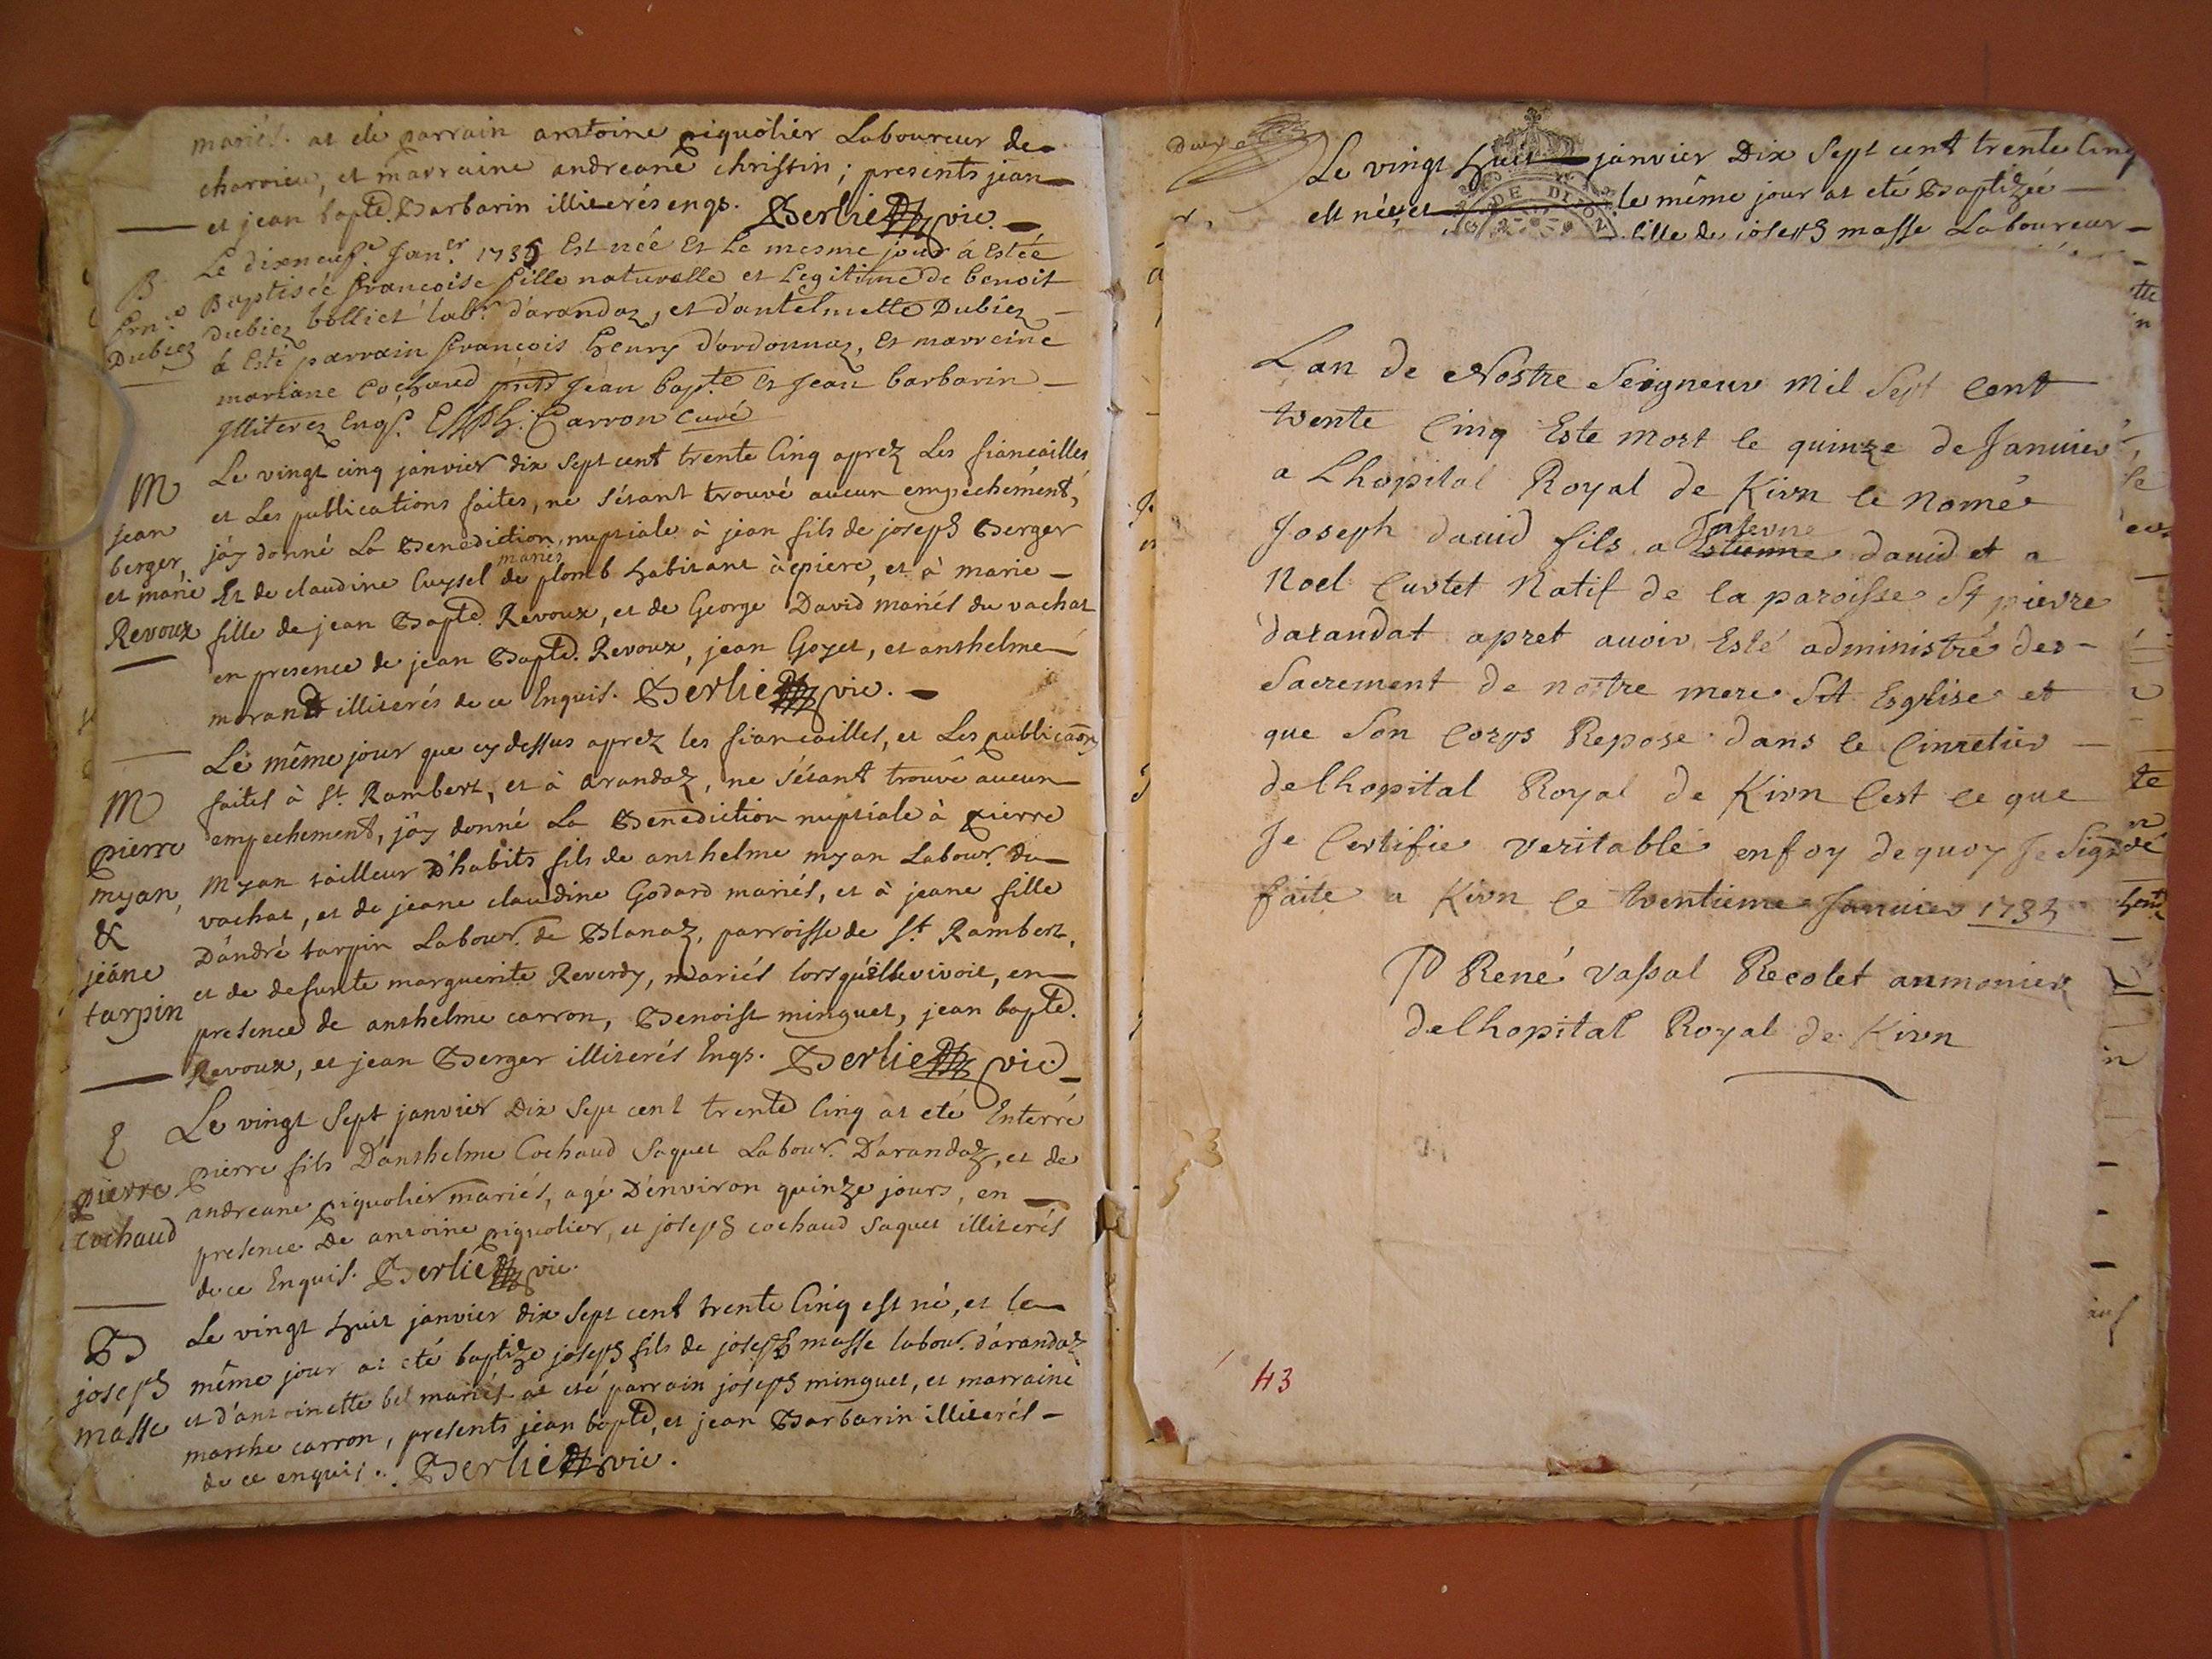 mariés. at eté parrain antoine piquolier Laboureur de
charvieu, et marraine andreane christin; presents jean
et jean bapte. Barbarin illiterés enqs. Berlie vic.
B
frn.se
Dubiez
Le dixneuf.e Jan.er 1735 Est née Et Le mesme jour á Estée
Baptisée francoise fille naturelle et Legitime de benoit
dubiez bolliet lab.r d'arandaz, et d'antelmette Dubiez
á Esté parrain francois henry d'ordonnaz, Et marreine
mariane Cochaud pnts Jean bapte Et Jean barbarin
Illiterez Enqs. Carron Curé
M
jean
berger,
et marie
Revoux
Le vingt cinq janvier dix sept cent trente Cinq aprez Les fiancailles
et Les publications faites, ne s'étant trouvé aucun empechément,
j'áy donné La Benediction nuptiale à jean fils de joseph Berger
Et de claudine Cuysel mariés de plomb habitant à épiere, et à marie
fille de jean Bapte. Revoux, et de George David mariés du vachat
en presence de jean Bapte. Revoux, jean Goyet, et anthelme
morand illiterés de ce Enquis. Berlie vic.
M
pierre
myan,
&
jeáne
tarpin
Le même jour que cy dessus aprez les fiancailles, et Les publicaõns
faites à St. Rambert, et à arandaz, ne s'étant trouvé aucun
empechement, j'áy donné La Benediction nuptiale à pierre
Myan tailleur D'habits fils de anthelme myan Labour. du
vachat, et de jeane claudine Godard mariés, et à jeane fille
D'andré tarpin Labour. de Blanaz, parroisse de St. Rambert,
et de defunte marguerite Reverdy, mariés lorsqu'elle vivoit, en
presence de anthelme carron, Benoist minguet, jean bapte.
Revoux, et jean Berger illiterés Enqs. Berlie vic.
E
pierre
cochaud
Le vingt Sept janvier Dix Sept cent trente Cinq at eté Enterré
pierre fils D'anthelme Cochaud Saquet Labour. D'arandaz, et de
andreane piquolier mariés, agé D'environ quinze jours, en
presence De antoine piquolier, et joseph cochaud saquet illiterés
de ce Enquis. Berlie vic.
B
joseph
masse
Le vingt huit janvier dix sept cent trente Cinq est né, et le
même jour at eté baptize joseph fils de joseph masse labour. d'arandaz
et d'antoinette bel mariés at eté parrain joseph minguet, et marraine
marthe carron, presents jean bapte, et jean Barbarin illiterés
de ce enquis. Berlie vic.
Le vingt huit janvier Dix Sept cent trente Cinq
est née, et le même jour at eté Baptizée
DE DIJON
fille de joseph masse Laboureur
Lan de Nostre Seigneur Mil Sept Cent
trente Cinq Este mort le quinze de Januier
a Lhopital Royal de Kirn le Nomée
Joseph dauid fils a Estienne dauid et a
Noel Curtet Natif de la paroisse St pierre
darandat apret auoir Esté administré des
Sacrement de nostre mere Ste Esglise et
que Son Corps Repose dans le Cimetier
delhopital Royal de Kirn Cest ce que
Je Certifie veritable enfoy dequoy Je Signe
faite a Kirn le trentieme Januier 1735
P René Vassal Recolet aumonier
delhopital Royal de Kirn
43